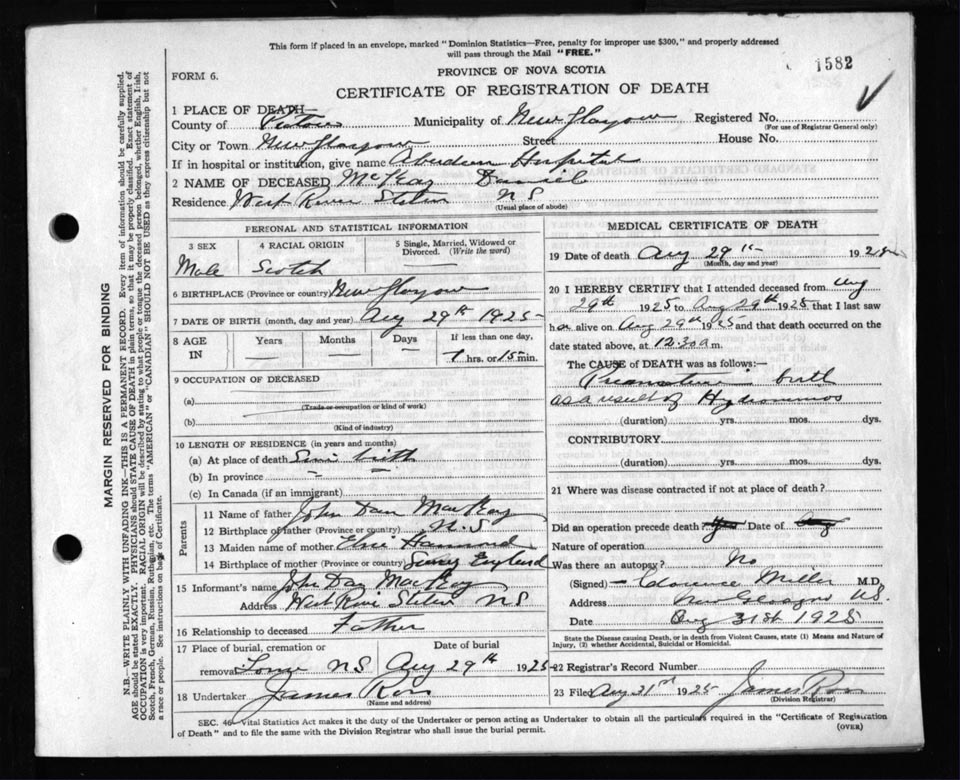 This form if placed in an envelope, marked "Dominion Statistics—Free, penalty for improper use $300," and properly addressed
will pass through the Mail "FREE."
1582
FORM 6.
PROVINCE OF NOVA SCOTIA
CERTIFICATE OF REGISTRATION OF DEATH
1 PLACE OF DEATH
County of Pictou Municipality of New Glasgow Registered No.
(For use of Registrar General only)
City or Town New Glasgow Street House No.
If in hospital or institution, give name Aberdeen Hospital
2 NAME OF DECEASED McKay Daniel
Residence West River Station N S
(Usual place of abode)
PERSONAL AND STATISTICAL INFORMATION
3 SEX 4 RACIAL ORIGIN 5 Single, Married, Widowed or
Divorced. (Write the word)
Male Scotch
6 BIRTHPLACE (Province or country) New Glasgow
7 DATE OF BIRTH (month, day and year) Aug 29th 1925
8 AGE IN Years Months Days If less than one day,
— — — hrs. or 15 min.
9 OCCUPATION OF DECEASED
(a)
(Trade or occupation or kind of work)
(b)
(Kind of industry)
10 LENGTH OF RESIDENCE (in years and months)
(a) At place of death Since birth
(b) In province
(c) In Canada (if an immigrant)
Parents
11 Name of father John Dan MacKay
12 Birthplace of father (Province or country) N.S
13 Maiden name of mother Elsie
14 Birthplace of mother (Province or country) England
15 Informant's name John Dan MacKay
Address West River Station N S
16 Relationship to deceased Father
17 Place of burial, cremation or Date of burial
removal N S Aug 29th 1925
18 Undertaker James Ross
(Name and address)
MEDICAL CERTIFICATE OF DEATH
19 Date of death Aug 29th 1925
(Month, day and year)
20 I HEREBY CERTIFY that I attended deceased from Aug
29th 1925 to Aug 29th 1925 that I last saw
h alive on Aug 29th 1925 and that death occurred on the
date stated above, at 12.30 a m.
The CAUSE OF DEATH was as follows:—
Premature birth
as a result of
(duration) yrs. mos. dys.
CONTRIBUTORY
(duration) yrs. mos. dys.
21 Where was disease contracted if not at place of death?
Did an operation precede death? Date of
Nature of operation
Was there an autopsy? No
(Signed) Clarence Miller M.D.
Address New Glasgow N.S.
Date Aug 31st 1925
State the Disease causing Death, or in death from Violent Causes, state (1) Means and Nature of
Injury, (2) whether Accidental, Suicidal or Homicidal.
22 Registrar's Record Number
23 Filed Aug 31st 1925 James Ross
(Division Registrar)
SEC. 46—Vital Statistics Act makes it the duty of the Undertaker or person acting as Undertaker to obtain all the particulars required in the "Certificate of Registration
of Death" and to file the same with the Division Registrar who shall issue the burial permit.
(OVER)
MARGIN RESERVED FOR BINDING
N.B.—WRITE PLAINLY WITH UNFADING INK—THIS IS A PERMANENT RECORD. Every item of information should be carefully supplied.
AGE should be stated EXACTLY. PHYSICIANS should STATE CAUSE OF DEATH in plain terms, so that it may be properly classified. Exact statement of
OCCUPATION is very important. RACIAL ORIGIN will be described by stating to what people or tongue the deceased person belonged, whether English, Irish,
Scotch, French, German, Russian, Ruthenian, etc. The terms "AMERICAN" or "CANADIAN" SHOULD NOT BE USED as they express citizenship but not
a race or people. See instructions on back of Certificate.